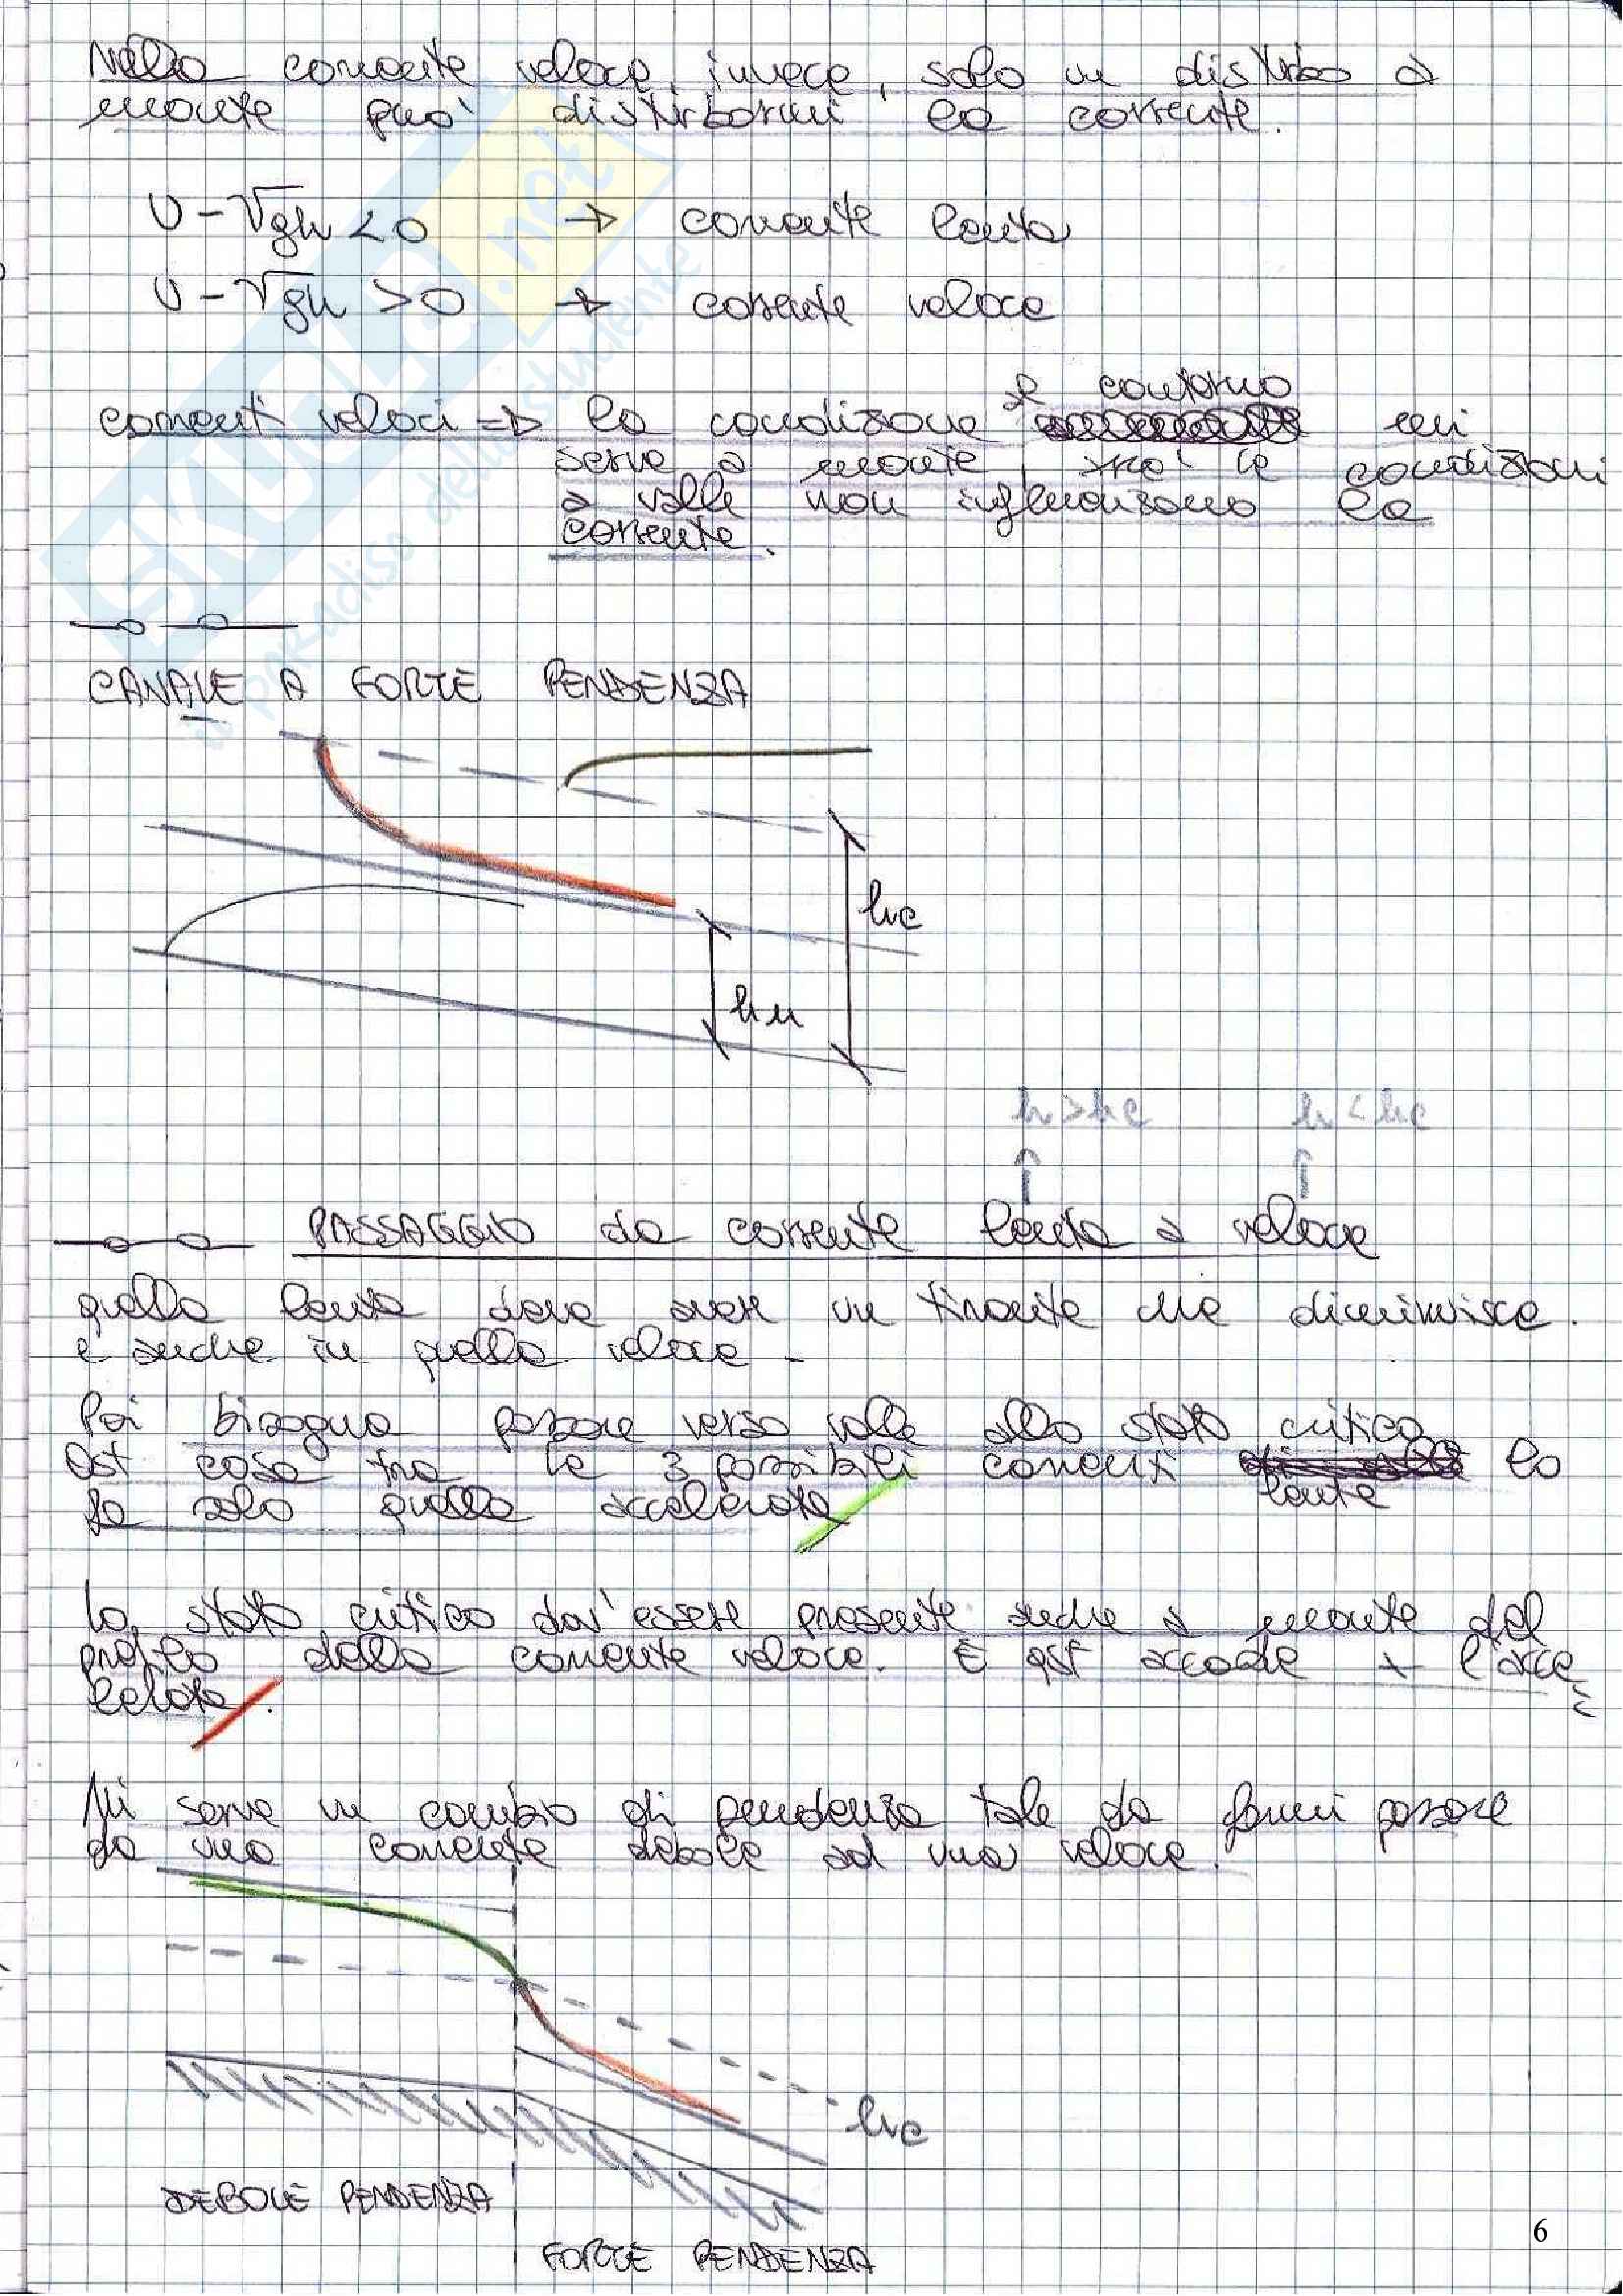 Nella corrente veloce, invece, solo un disturbo a
monte puo' disturbarmi la corrente.
U - √gh < 0 → corrente lenta
U - √gh > 0 → corrente veloce
al contorno
correnti veloci => la condizione mi
serve a monte, le condizioni
a valle non influenzano la
corrente.
CANALE A FORTE PENDENZA
hc
hu
h > hc h < hc
PASSAGGIO da corrente lenta a veloce
quella lenta deve avere un tirante che diminuisce.
e anche in quella veloce -
Poi bisogna passare verso valle allo stato critico
Qst cosa tra le 3 possibili correnti lente la
fa solo quella accelerata
Lo stato critico dov' essere presente anche a monte del
profilo della corrente veloce. E qst accade x l'acce
lerata.
Mi serve un cambio di pendenza tale da farmi passare
da una corrente debole ad una veloce.
hc
DEBOLE PENDENZA
FORTE PENDENZA
6
SKUOLA.net
il paradiso dello studente